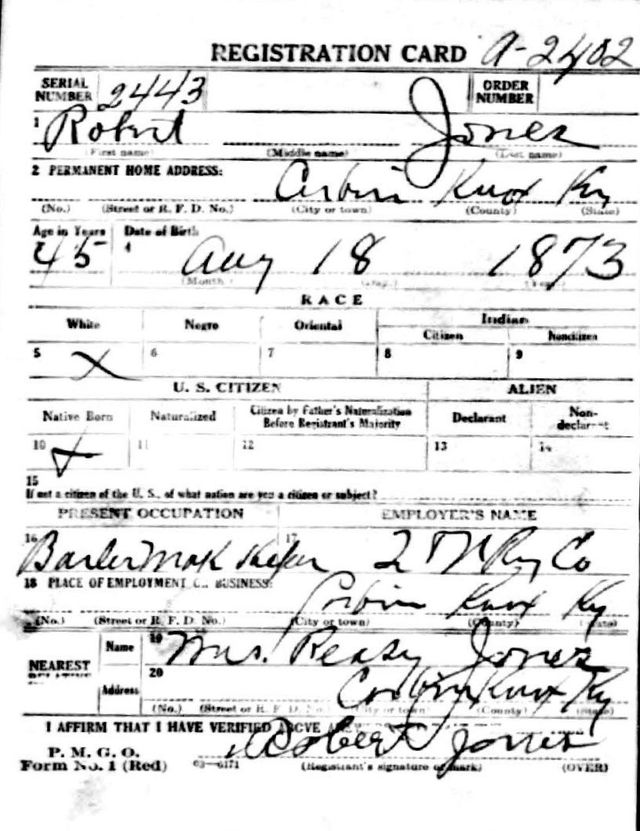 REGISTRATION CARD A-2402
SERIAL NUMBER 2443 ORDER NUMBER
1 Robert Jones
(First name) (Middle name) (Last name)
2 PERMANENT HOME ADDRESS:
Corbin Knox Ky
(No.) (Street or R. F. D. No.) (City or town) (County) (State)
Age in Years Date of Birth
45 4 Aug 18 1873
(Month) (Day) (Year)
RACE
White Negro Oriental Indian
Citizen Noncitizen
5 X 6 7 8 9
U. S. CITIZEN ALIEN
Native Born Naturalized Citizen by Father's Naturalization Before Registrant's Majority Declarant Non-declarant
10 X 11 12 13 14
15
If not a citizen of the U. S., of what nation are you a citizen or subject?
PRESENT OCCUPATION EMPLOYER'S NAME
16 17
L & N Ry Co
18 PLACE OF EMPLOYMENT OR BUSINESS:
Corbin Knox Ky
(No.) (Street or R. F. D. No.) (City or town) (County) (State)
NEAREST RELATIVE
Name 19 Mrs. Jones
Address 20 Corbin Knox Ky
(No.) (Street or R. F. D. No.) (City or town) (County) (State)
I AFFIRM THAT I HAVE VERIFIED ABOVE
P. M. G. O.
Form No. 1 (Red) 03-6171 Robert Jones
(Registrant's signature or mark) (OVER)